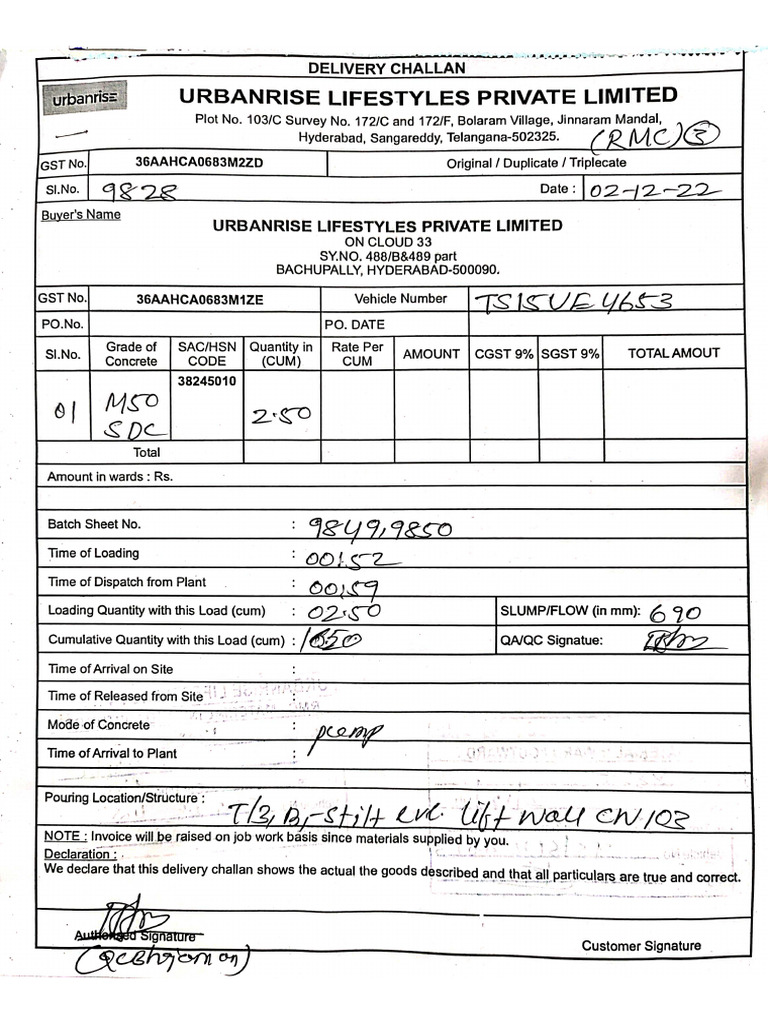 DELIVERY CHALLAN
urbanrise
URBANRISE LIFESTYLES PRIVATE LIMITED
Plot No. 103/C Survey No. 172/C and 172/F, Bolaram Village, Jinnaram Mandal,
Hyderabad, Sangareddy, Telangana-502325.
(RMC) 3
GST No. 36AAHCA0683M2ZD Original / Duplicate / Triplecate
Sl.No. 9828 Date : 02-12-22
Buyer's Name
URBANRISE LIFESTYLES PRIVATE LIMITED
ON CLOUD 33
SY.NO. 488/B&489 part
BACHUPALLY, HYDERABAD-500090.
GST No. 36AAHCA0683M1ZE Vehicle Number TS15UE4653
PO.No. PO. DATE
Sl.No. Grade of Concrete SAC/HSN CODE Quantity in (CUM) Rate Per CUM AMOUNT CGST 9% SGST 9% TOTAL AMOUT
01 M50 SDC 38245010 2.50
Total
Amount in wards : Rs.
Batch Sheet No. : 9849,9850
Time of Loading : 00:52
Time of Dispatch from Plant : 00:59
Loading Quantity with this Load (cum) : 02.50 SLUMP/FLOW (in mm): 690
Cumulative Quantity with this Load (cum) : QA/QC Signatue:
Time of Arrival on Site :
Time of Released from Site :
Mode of Concrete : pump
Time of Arrival to Plant :
Pouring Location/Structure :
T/3, B,-stilt lift wall CW103
NOTE : Invoice will be raised on job work basis since materials supplied by you.
Declaration :
We declare that this delivery challan shows the actual the goods described and that all particulars are true and correct.
Authorised Signature
Customer Signature